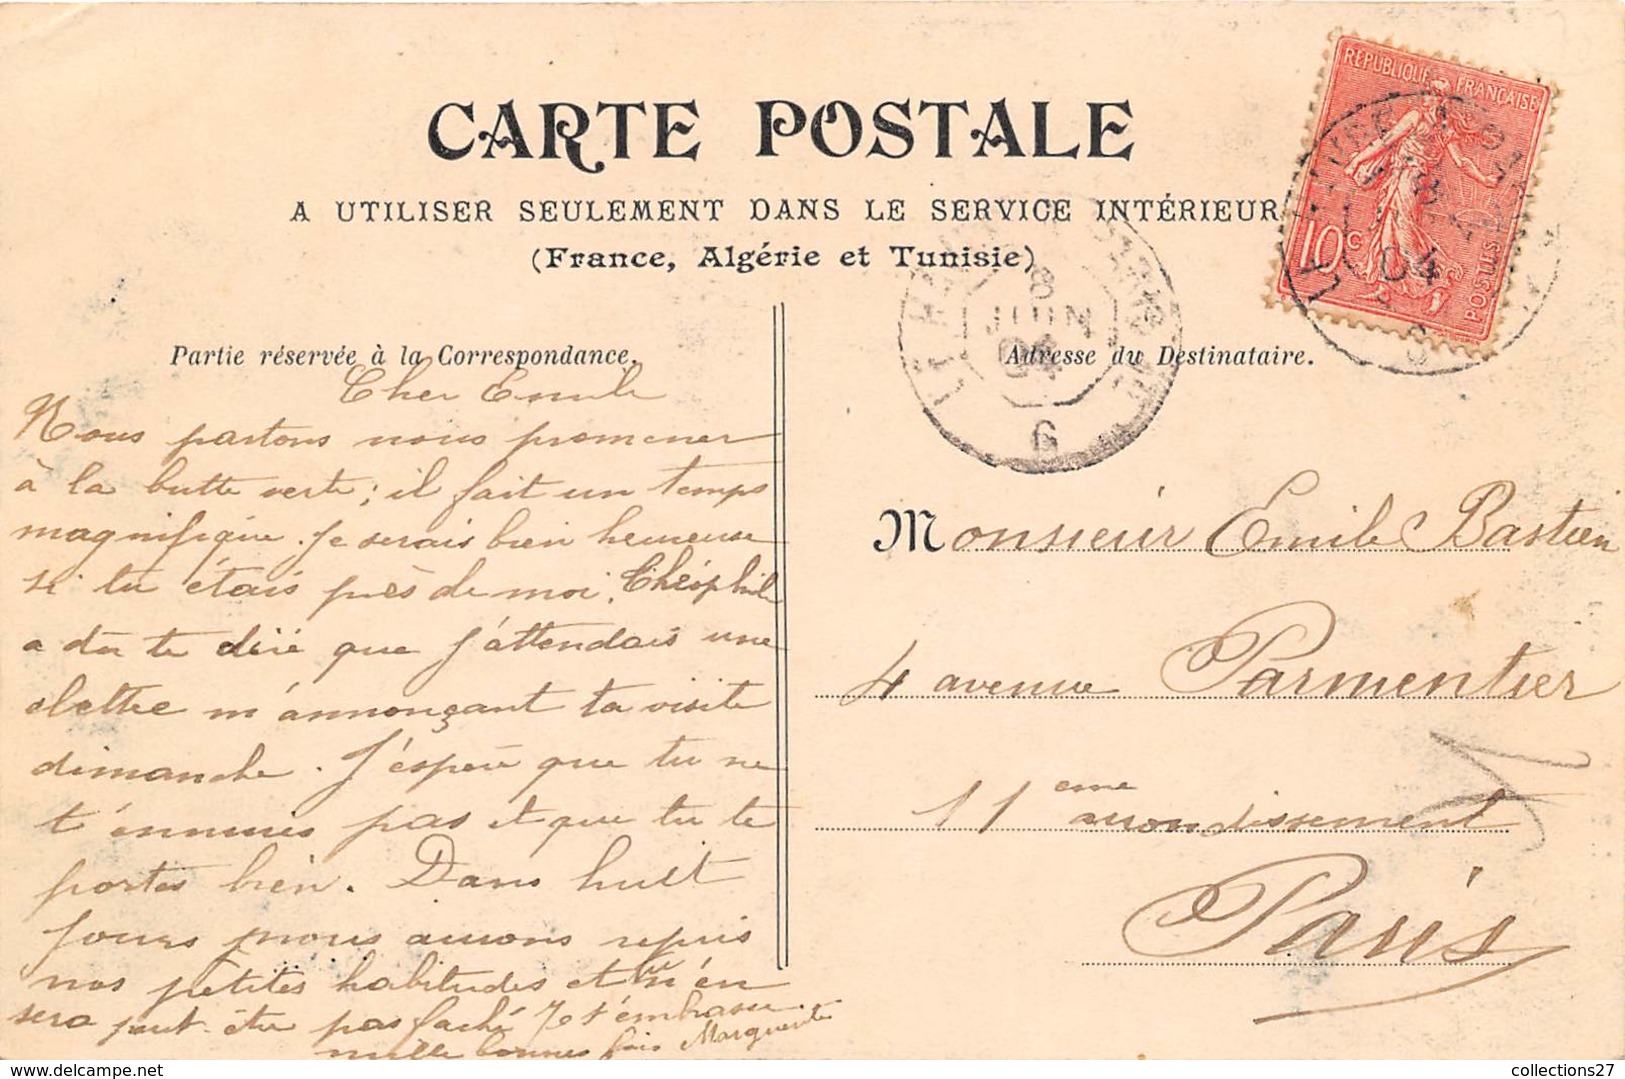 CARTE POSTALE
A UTILISER SEULEMENT DANS LE SERVICE INTÉRIEUR
(France, Algérie et Tunisie)
REPUBLIQUE FRANÇAISE
10c
POSTES
8
JUIN
04
6
04
Partie réservée à la Correspondance.
Cher Emile
Nous partons nous promener
à la butte verte; il fait un temps
magnifique. Je serais bien heureuse
si tu étais près de moi. Théophile
a dû te dire que j'attendais une
lettre m'annonçant ta visite
dimanche. J'espère que tu ne
t'ennuies pas et que tu te
portes bien. Dans huit
jours nous aurons repris
nos petites habitudes et tu n'en
sera peut-être pas faché Je t'embrasse
mille bonnes fois Marguerite
Adresse du Destinataire.
Monsieur Emile Bastien
4 avenue Parmentier
11eme arrondissement
Paris
collections27